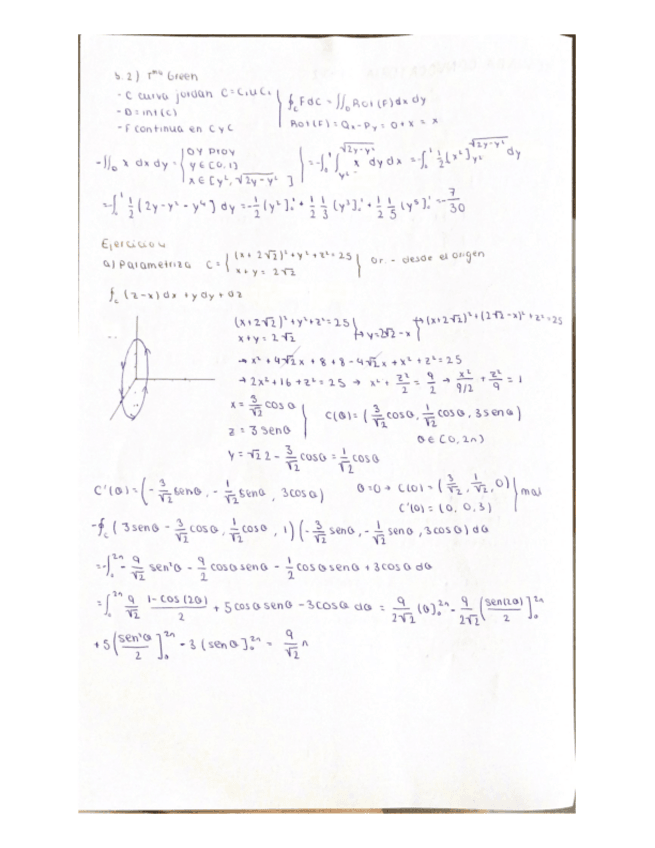 3.2) Tma Green
- C curva jordan C=C₁∪C₂
- D=int(C)
- F continua en C y C
∮_C F dC = ∬_D Rot(F) dx dy
Rot(F)= Qx - Py = 0 + x = x
-∬_D x dx dy = { OY proy y∈[0,1] x∈[y², √(2y-y²)] } = -∫₀¹ ∫_{y²}^{√(2y-y²)} x dy dx = -∫₀¹ ½ [x²]_{y²}^{√(2y-y²)} dy
= -∫₀¹ ½ (2y - y² - y⁴) dy = -½ (y²]₀¹ + ½ ⅓ (y³]₀¹ + ½ ⅕ (y⁵]₀¹ = -7/30
Ejercicio 4
a) Parametriza C = { (x+2√2)² + y² + z² = 25 x + y = 2√2 } Or. - desde el origen
∮_C (z-x) dx + y dy + dz
(x+2√2)² + y² + z² = 25
x + y = 2√2 → y = 2√2 - x → (x+2√2)² + (2√2 - x)² + z² = 25
→ x² + 4√2x + 8 + 8 - 4√2x + x² + z² = 25
→ 2x² + 16 + z² = 25 → x² + z²/2 = 9/2 → x²/(9/2) + z²/9 = 1
x = 3/√2 cosθ
z = 3 senθ
C(θ) = (3/√2 cosθ, 1/√2 cosθ, 3 senθ)
θ∈(0, 2π)
y = √2 2 - 3/√2 cosθ = 1/√2 cosθ
C'(θ) = (-3/√2 senθ, -1/√2 senθ, 3cosθ) θ=0 → C(0) = (3/√2, 1/√2, 0)
C'(0) = (0, 0, 3) } mal
-∮_C (3senθ - 3/√2 cosθ, 1/√2 cosθ, 1) (-3/√2 senθ, -1/√2 senθ, 3cosθ) dθ
= -∫₀^{2π} -9/√2 sen²θ - 9/2 cosθ senθ - ½ cosθ senθ + 3 cosθ dθ
= ∫₀^{2π} 9/√2 (1-cos(2θ))/2 + 5 cosθ senθ - 3cosθ dθ = 9/(2√2) (θ]₀^{2π} - 9/(2√2) (sen(2θ)/2]₀^{2π}
+ 5 (sen²θ/2]₀^{2π} - 3 (senθ]₀^{2π} = 9/√2 π